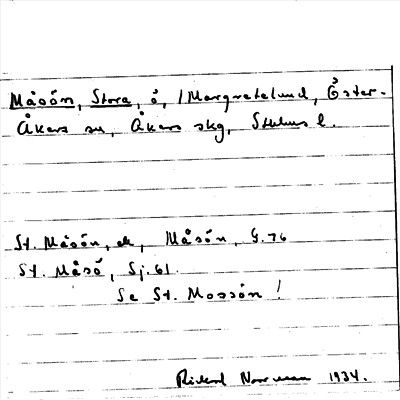 Måsön, Stora, ö, /Margretelund, Öster-
Åkers sn, Åkers skg, Sthlms l.
St. Måsön, ek, Måsön, G. 76
St. Måsö, Sj. 61.
Se St. Mossön!
Rickard Norrman 1934.